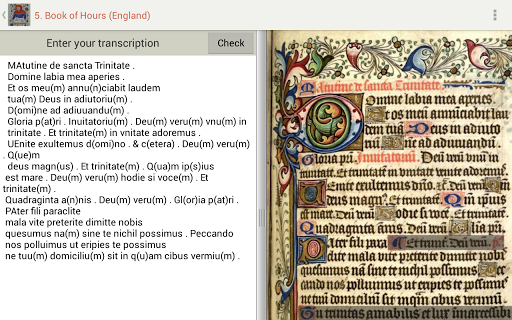 5. Book of Hours (England)
Enter your transcription
Check
MAtutine de sancta Trinitate .
Domine labia mea aperies .
Et os meu(m) annu(n)ciabit laudem
tua(m) Deus in adiutoriu(m) .
D(omi)ne ad adiuuandu(m) .
Gloria p(at)ri . Inuitatoriu(m) . Deu(m) veru(m) vnu(m) in
trinitate . Et trinitate(m) in vnitate adoremus .
UEnite exultemus d(omi)no . & c(etera) . Deu(m) veru(m)
. Q(ue)m
deus magn(us) . Et trinitate(m) . Q(ua)m ip(s)ius
est mare . Deu(m) veru(m) hodie si voce(m) . Et
trinitate(m) .
Quadraginta a(n)nis . Deu(m) veru(m) . Gl(or)ia p(at)ri .
PAter fili paraclite
mala vite preterite dimitte nobis
quesumus na(m) sine te nichil possimus . Peccando
nos polluimus ut eripies te possimus
ne tuu(m) domiciliu(m) sit in q(u)am cibus vermiu(m) .
Matutine de sancta Trinitate
Omine labia mea aperies.
et os meu annuciabit lau
dem tua. Deus in adiuto
ne ad adiuuandu.
Gloria pri. Inuitatoriu. Deu veru vnu
in trinitate. Et trinitate in vnitate adore
enite exultemus dno. Deu veru
deus magn. Et trinitate.
est mare. Deu veru. odie si voce. Et
uadraginta anis. Deu veru.
ter fili para Et trinit. Deu veru.
clite mala vite preterite dimitte nobis
quesumus na sine te nichil possumus
nos polluimus ut
ne tuu domciliu sit in qm cibus vermiu.